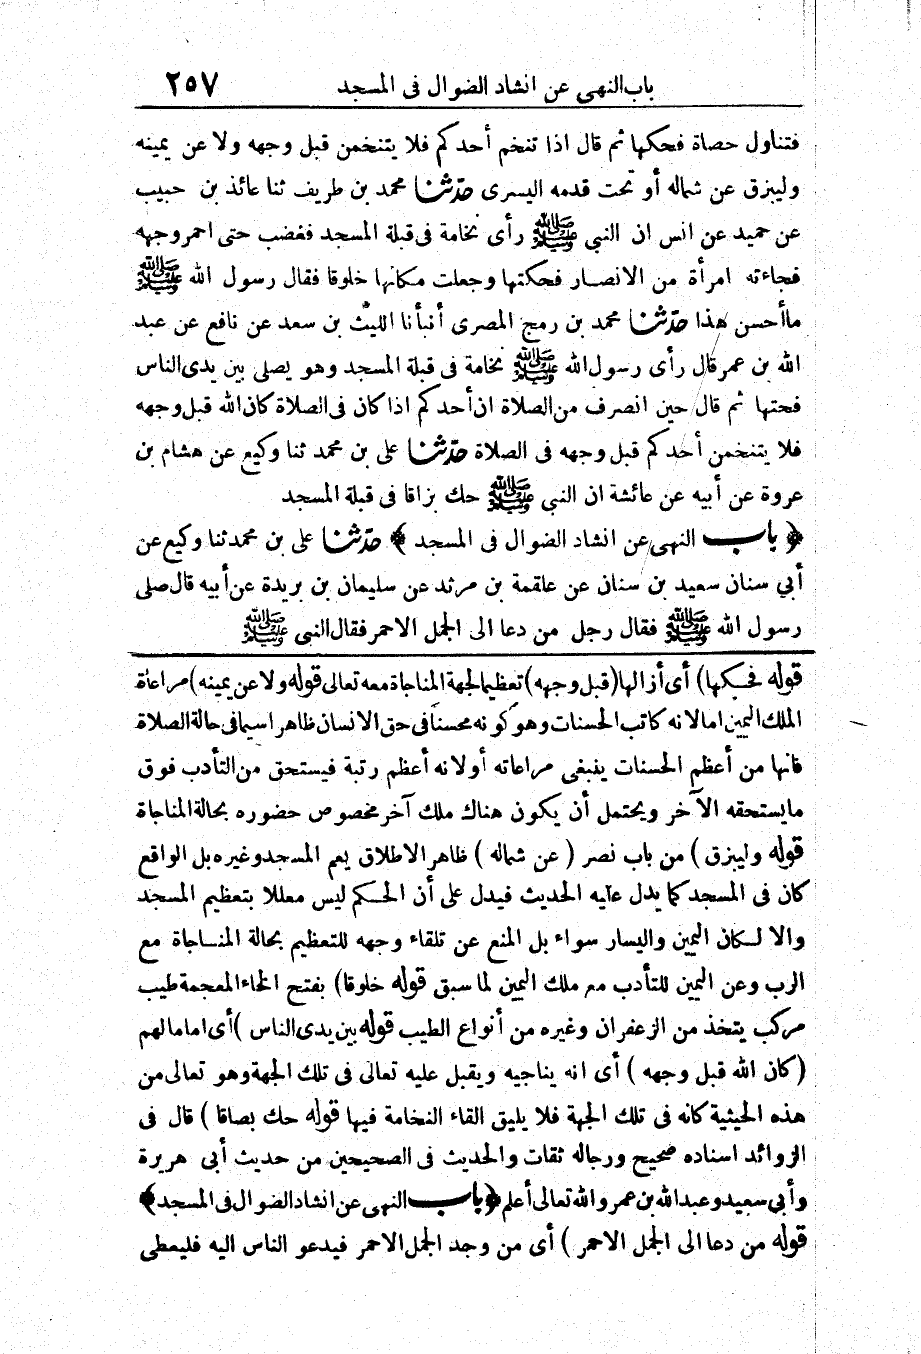 باب النهى عن انشاد الضوال فى المسجد ٢٥٧
فتناول حصاة فحكها ثم قال اذا تنخم أحدكم فلا يتنخمن قبل وجهه ولا عن يمينه
وليبزق عن شماله أو تحت قدمه اليسرى حدّثنا محمد بن طريف ثنا عائذ بن حبيب
عن حميد عن انس ان النبي ﷺ رأى نخامة فى قبلة المسجد فغضب حتى احمر وجهه
فجاءته امرأة من الانصار فحكتها وجعلت مكانها خلوقا فقال رسول الله ﷺ
ما أحسن هذا حدّثنا محمد بن رمح المصرى أنبأنا الليث بن سعد عن نافع عن عبد
الله بن عمر قال رأى رسول الله ﷺ نخامة فى قبلة المسجد وهو يصلى بين يدى الناس
فحتها ثم قال حين انصرف من الصلاة ان أحدكم اذا كان فى الصلاة كان الله قبل وجهه
فلا يتنخمن أحدكم قبل وجهه فى الصلاة حدّثنا على بن محمد ثنا وكيع عن هشام بن
عروة عن أبيه عن عائشة ان النبي ﷺ حك بزاقا فى قبلة المسجد
﴿ باب النهى عن انشاد الضوال فى المسجد ﴾ حدّثنا على بن محمد ثنا وكيع عن
أبي سنان سعيد بن سنان عن علقمة بن مرثد عن سليمان بن بريدة عن أبيه قال صلى
رسول الله ﷺ فقال رجل من دعا الى الجمل الاحمر فقال النبى ﷺ
قوله فحكها) أى أزالها (قبل وجهه) تعظيما لجهة المناجاة معه تعالى قوله ولا عن يمينه) مراعاة
الملك اليمين امالانه كاتب الحسنات وهو كونه محسنا فى حق الانسان ظاهر اسيما فى حالة الصلاة
فانها من أعظم الحسنات ينبغى مراعاته أو لانه أعظم رتبة فيستحق من التأدب فوق
ما يستحقه الآخر ويحتمل أن يكون هناك ملك آخر مخصوص حضوره بحالة المناجاة
قوله وليبزق ) من باب نصر ( عن شماله ) ظاهر الاطلاق يعم المسجد وغيره بل الواقع
كان فى المسجد كما يدل عليه الحديث فيدل على أن الحكم ليس معللا بتعظيم المسجد
والا لكان اليمين واليسار سواء بل المنع عن تلقاء وجهه للتعظيم بحالة المناجاة مع
الرب وعن اليمين للتأدب مع ملك اليمين لما سبق قوله خلوقا) بفتح الخاء المعجمة طيب
مركب يتخذ من الزعفران وغيره من أنواع الطيب قوله بين يدى الناس )أى امامالهم
(كان الله قبل وجهه ) أى انه يناجيه ويقبل عليه تعالى فى تلك الجهة وهو تعالى من
هذه الحيثية كانه فى تلك الجهة فلا يليق القاء النخامة فيها قوله حك بصاقا ) قال فى
الزوائد اسناده صحيح ورجاله ثقات والحديث فى الصحيحين من حديث أبى هريرة
وأبي سعيد وعبد الله بن عمر والله تعالى أعلم ﴿باب النهى عن انشاد الضوال فى المسجد﴾
قوله من دعا الى الجمل الاحمر ) أى من وجد الجمل الاحمر فيدعو الناس اليه فليعطى